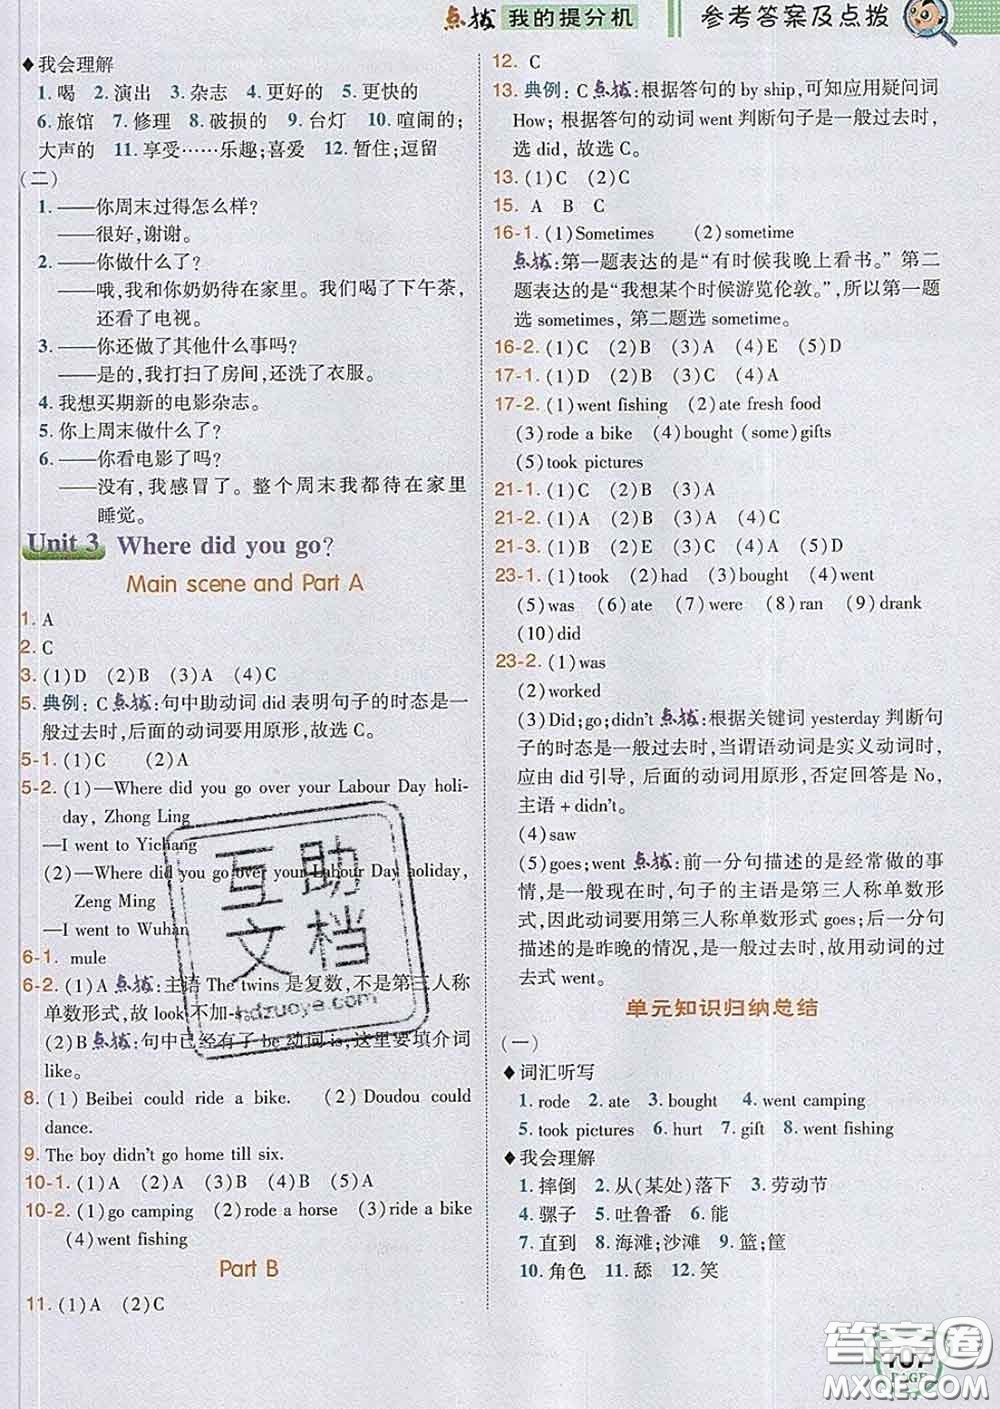 点拨 我的提分机 参考答案及点拨
◆我会理解
1. 喝 2. 演出 3. 杂志 4. 更好的 5. 更快的
6. 旅馆 7. 修理 8. 破损的 9. 台灯 10. 喧闹的;
大声的 11. 享受……乐趣;喜爱 12. 暂住;逗留
(二)
1. ——你周末过得怎么样?
——很好,谢谢。
2. ——你做什么了?
——哦,我和你奶奶待在家里。我们喝了下午茶,
还看了电视。
3. ——你还做了其他什么事吗?
——是的,我打扫了房间,还洗了衣服。
4. 我想买期新的电影杂志。
5. 你上周末做什么了?
6. ——你看电影了吗?
——没有,我感冒了。整个周末我都待在家里
睡觉。
Unit 3 Where did you go?
Main scene and Part A
1. A
2. C
3. (1)D (2)B (3)A (4)C
5. 典例: C点拨:句中助动词 did 表明句子的时态是一
般过去时,后面的动词要用原形,故选C。
5-1. (1)C (2)A
5-2. (1)—Where did you go over your Labour Day holi-
day, Zhong Ling
—I went to Yichang
(2)—Where did you go over your Labour Day holiday,
Zeng Ming
—I went to Wuhan
6-1. mule
6-2. (1)A 点拨:主语 The twins 是复数,不是第三人称
单数形式,故 look 不加-s。
(2)B点拨:句中已经有了 be 动词 is,这里要填介词
like。
8. (1) Beibei could ride a bike. (2) Doudou could
dance.
9. The boy didn't go home till six.
10-1. (1)A (2)A (3)B (4)B (5)A
10-2. (1)go camping (2)rode a horse (3)ride a bike
(4)went fishing
Part B
11. (1)A (2)C
12. C
13. 典例: C点拨:根据答句的 by ship, 可知应用疑问词
How; 根据答句的动词 went 判断句子是一般过去时,
选 did, 故选 C。
13. (1)C (2)C
15. A B C
16-1. (1)Sometimes (2)sometime
点拨:第一题表达的是“有时候我晚上看书。”第二
题表达的是“我想某个时候游览伦敦。”,所以第一题
选 sometimes, 第二题选 sometime。
16-2. (1)C (2)B (3)A (4)E (5)D
17-1. (1)D (2)B (3)C (4)A
17-2. (1)went fishing (2)ate fresh food
(3)rode a bike (4)bought (some)gifts
(5)took pictures
21-1. (1)C (2)B (3)A
21-2. (1)A (2)B (3)A (4)C
21-3. (1)B (2)E (3)A (4)C (5)D
23-1. (1)took (2)had (3)bought (4)went
(5)was (6)ate (7)were (8)ran (9)drank
(10)did
23-2. (1)was
(2)worked
(3)Did;go;didn't 点拨:根据关键词 yesterday 判断句
子的时态是一般过去时,当谓语动词是实义动词时,
应由 did 引导, 后面的动词用原形,否定回答是 No,
主语 + didn't。
(4)saw
(5)goes;went 点拨:前一分句描述的是经常做的事
情,是一般现在时,句子的主语是第三人称单数形
式,因此动词要用第三人称单数形式 goes;后一分句
描述的是昨晚的情况,是一般过去时,故用动词的过
去式 went。
单元知识归纳总结
(一)
◆词汇听写
1. rode 2. ate 3. bought 4. went camping
5. took pictures 6. hurt 7. gift 8. went fishing
◆我会理解
1. 摔倒 2. 从(某处)落下 3. 劳动节
4. 骡子 5. 吐鲁番 6. 能
7. 直到 8. 海滩;沙滩 9. 篮;筐
10. 角色 11. 舔 12. 笑
互助
文档
hdzuoye.com
答案圈
MXQE.COM
PAGE